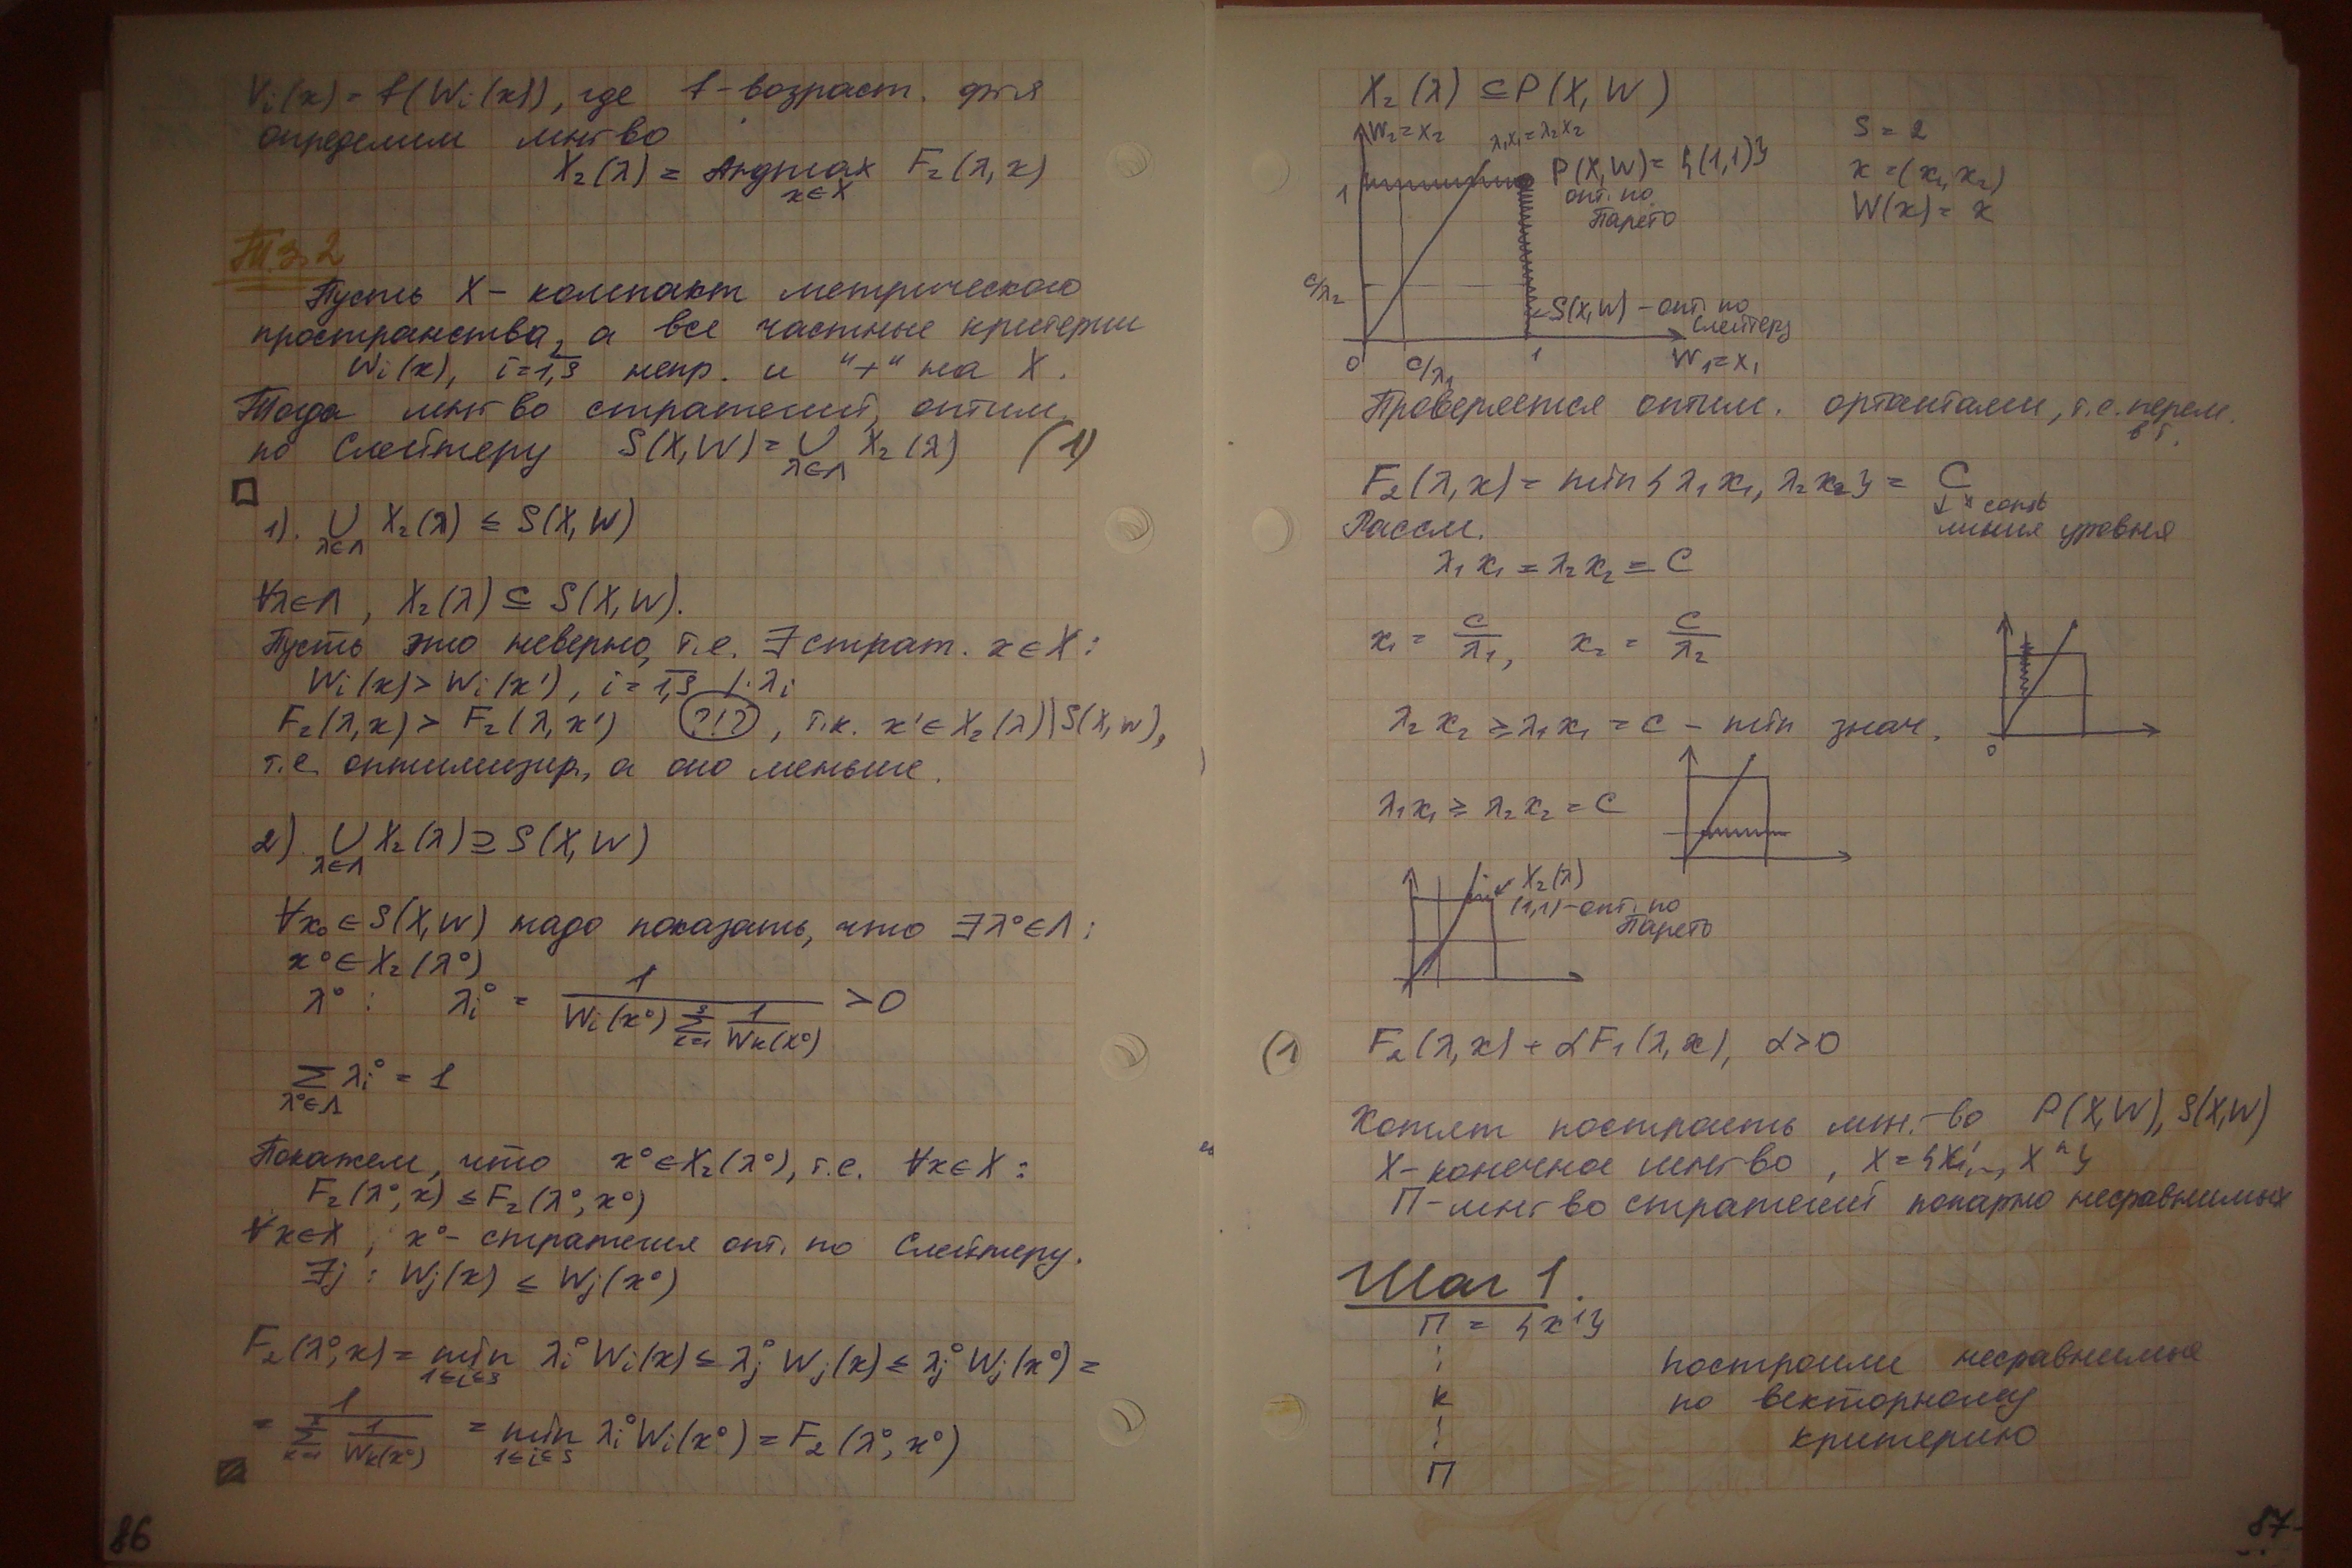 Vi(x) = f(Wi(x)), где f - возраст. ф-ия
определим мн-во
X₂(λ) = Argmax F₂(λ, x)
x∈X
Т.3.2
Пусть X - компакт метрического
пространства, а все частные критерии
Wi(x), i=1,s непр. и "+" на X.
Тогда мн-во стратегий, оптим.
по Слейтеру S(X,W) = ∪ X₂(λ) (1)
λ∈Λ
1). ∪ X₂(λ) ⊆ S(X,W)
λ∈Λ
∀λ∈Λ, X₂(λ) ⊆ S(X,W).
Пусть это неверно, т.е. ∃ страт. x∈X:
Wi(x) > Wi(x'), i=1,s /·λi
F₂(λ,x) > F₂(λ,x') ?!?, т.к. x'∈X₂(λ)\S(X,W),
т.е. оптимизир, а оно меньше.
2) ∪ X₂(λ) ⊇ S(X,W)
λ∈Λ
∀x₀∈S(X,W) надо показать, что ∃λ⁰∈Λ:
x⁰∈X₂(λ⁰)
λ⁰: λi⁰ = 1 / (Wi(x⁰) Σ_{k=1}^{s} 1/Wk(x⁰)) > 0
Σ λi⁰ = 1
λ⁰∈Λ
Покажем, что x⁰∈X₂(λ⁰), т.е. ∀x∈X:
F₂(λ⁰,x) ≤ F₂(λ⁰,x⁰)
∀x∈X, x⁰ - стратегия опт. по Слейтеру.
∃j: Wj(x) ≤ Wj(x⁰)
F₂(λ⁰,x) = min λi⁰ Wi(x) ≤ λj⁰ Wj(x) ≤ λj⁰ Wj(x⁰) =
1≤i≤s
= 1 / (Σ_{k=1}^{s} 1/Wk(x⁰)) = min λi⁰ Wi(x⁰) = F₂(λ⁰,x⁰)
1≤i≤s
86
X₂(λ) ⊆ P(X,W)
W₂=x₂
λ₁x₁=λ₂x₂
S = 2
1
P(X,W) = {(1,1)}
x = (x₁,x₂)
опт. по
W(x) = x
Парето
c/λ₂
S(X,W) - опт. по
Слейтеру
0
c/λ₁
1
W₁=x₁
Проверяется оптим. ортантами, т.е. перем.
в т.
F₂(λ,x) = min{λ₁x₁, λ₂x₂} = C
const
Рассм.
линия уровня
λ₁x₁ = λ₂x₂ = C
x₁ = c/λ₁, x₂ = c/λ₂
λ₂x₂ ≥ λ₁x₁ = c - min знач.
0
λ₁x₁ ≥ λ₂x₂ = C
X₂(λ)
(1,1) - опт. по
Парето
(1 F₂(λ,x) + αF₁(λ,x), α>0
Хотят построить мн.-во P(X,W), S(X,W)
X - конечное мн-во, X = {x¹,..., xⁿ}
П - мн-во стратегий попарно несравнимых
Шаг 1.
П = {x¹}
построили несравнимые
k
по векторному
критерию
П
87